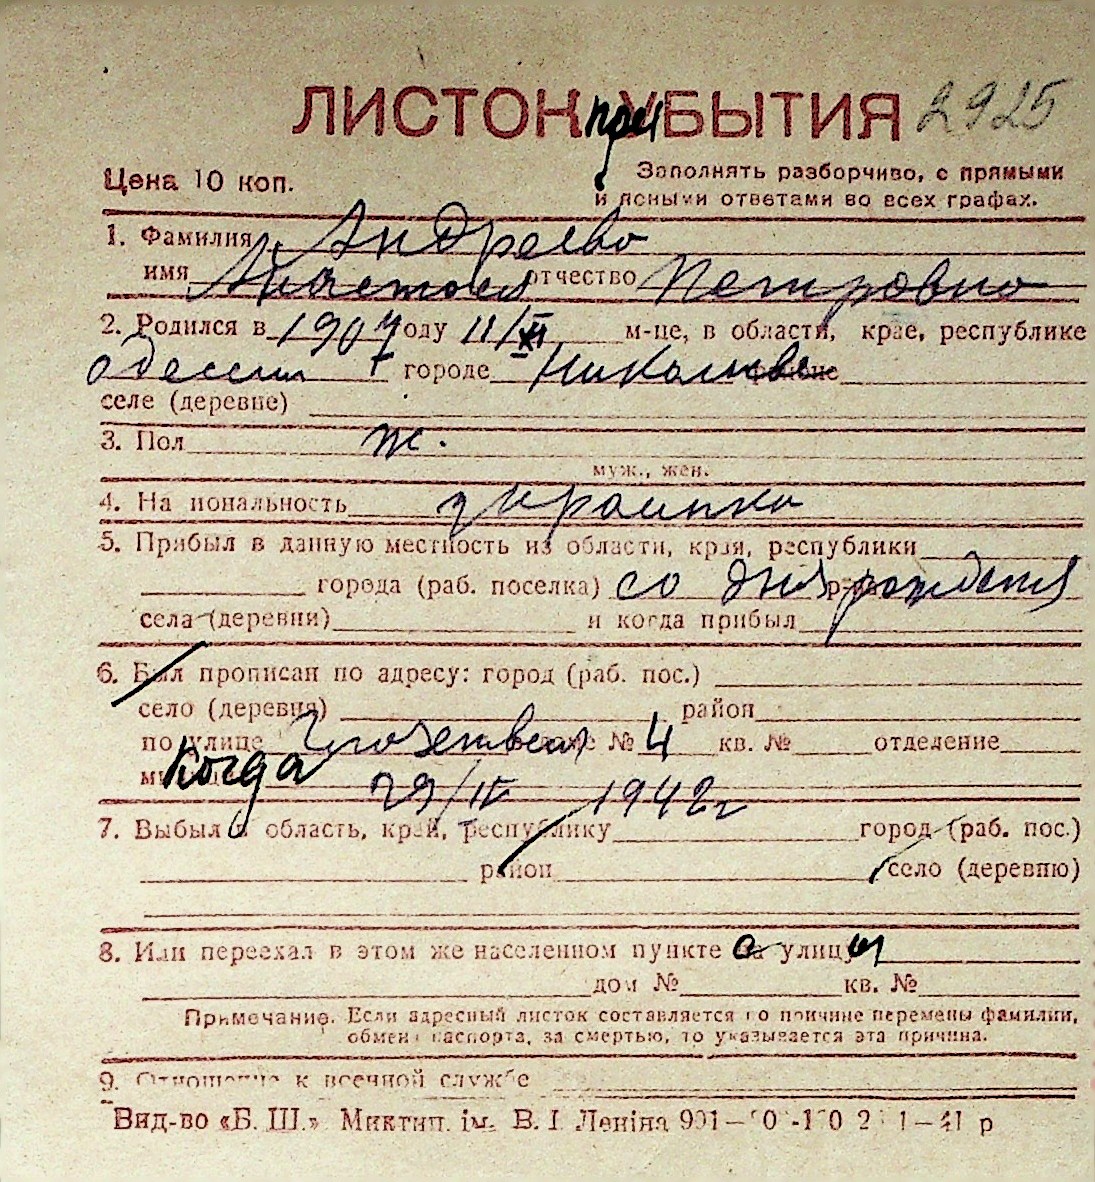 ЛИСТОК при УБЫТИЯ 2925
Цена 10 коп.
Заполнять разборчиво, с прямыми
и ясными ответами во всех графах.
1. Фамилия Андреева
имя Анастасия отчество Петровна
2. Родился в 1907 году 11/VI м-це, в области, крае, республике
Одесская г городе Николаеве районе
селе (деревне)
3. Пол ж.
муж., жен.
4. Национальность украинка
5. Прибыл в данную местность из области, края, республики
города (раб. поселка) со дня рождения
села (деревни) и когда прибыл
6. Был прописан по адресу: город (раб. пос.)
село (деревня) район
по улице № 4 кв. № отделение
Когда 29/IV 1942 г
7. Выбыл в область, край, республику город (раб. пос.)
район село (деревню)
8. Или переехал в этом же населенном пункте с улицы
дом № кв. №
Примечание. Если адресный листок составляется по причине перемены фамилии,
обмена паспорта, за смертью, то указывается эта причина.
9. Отношение к военной службе
Вид-во «Б. Ш.» Миктип. ім. В. І Леніна